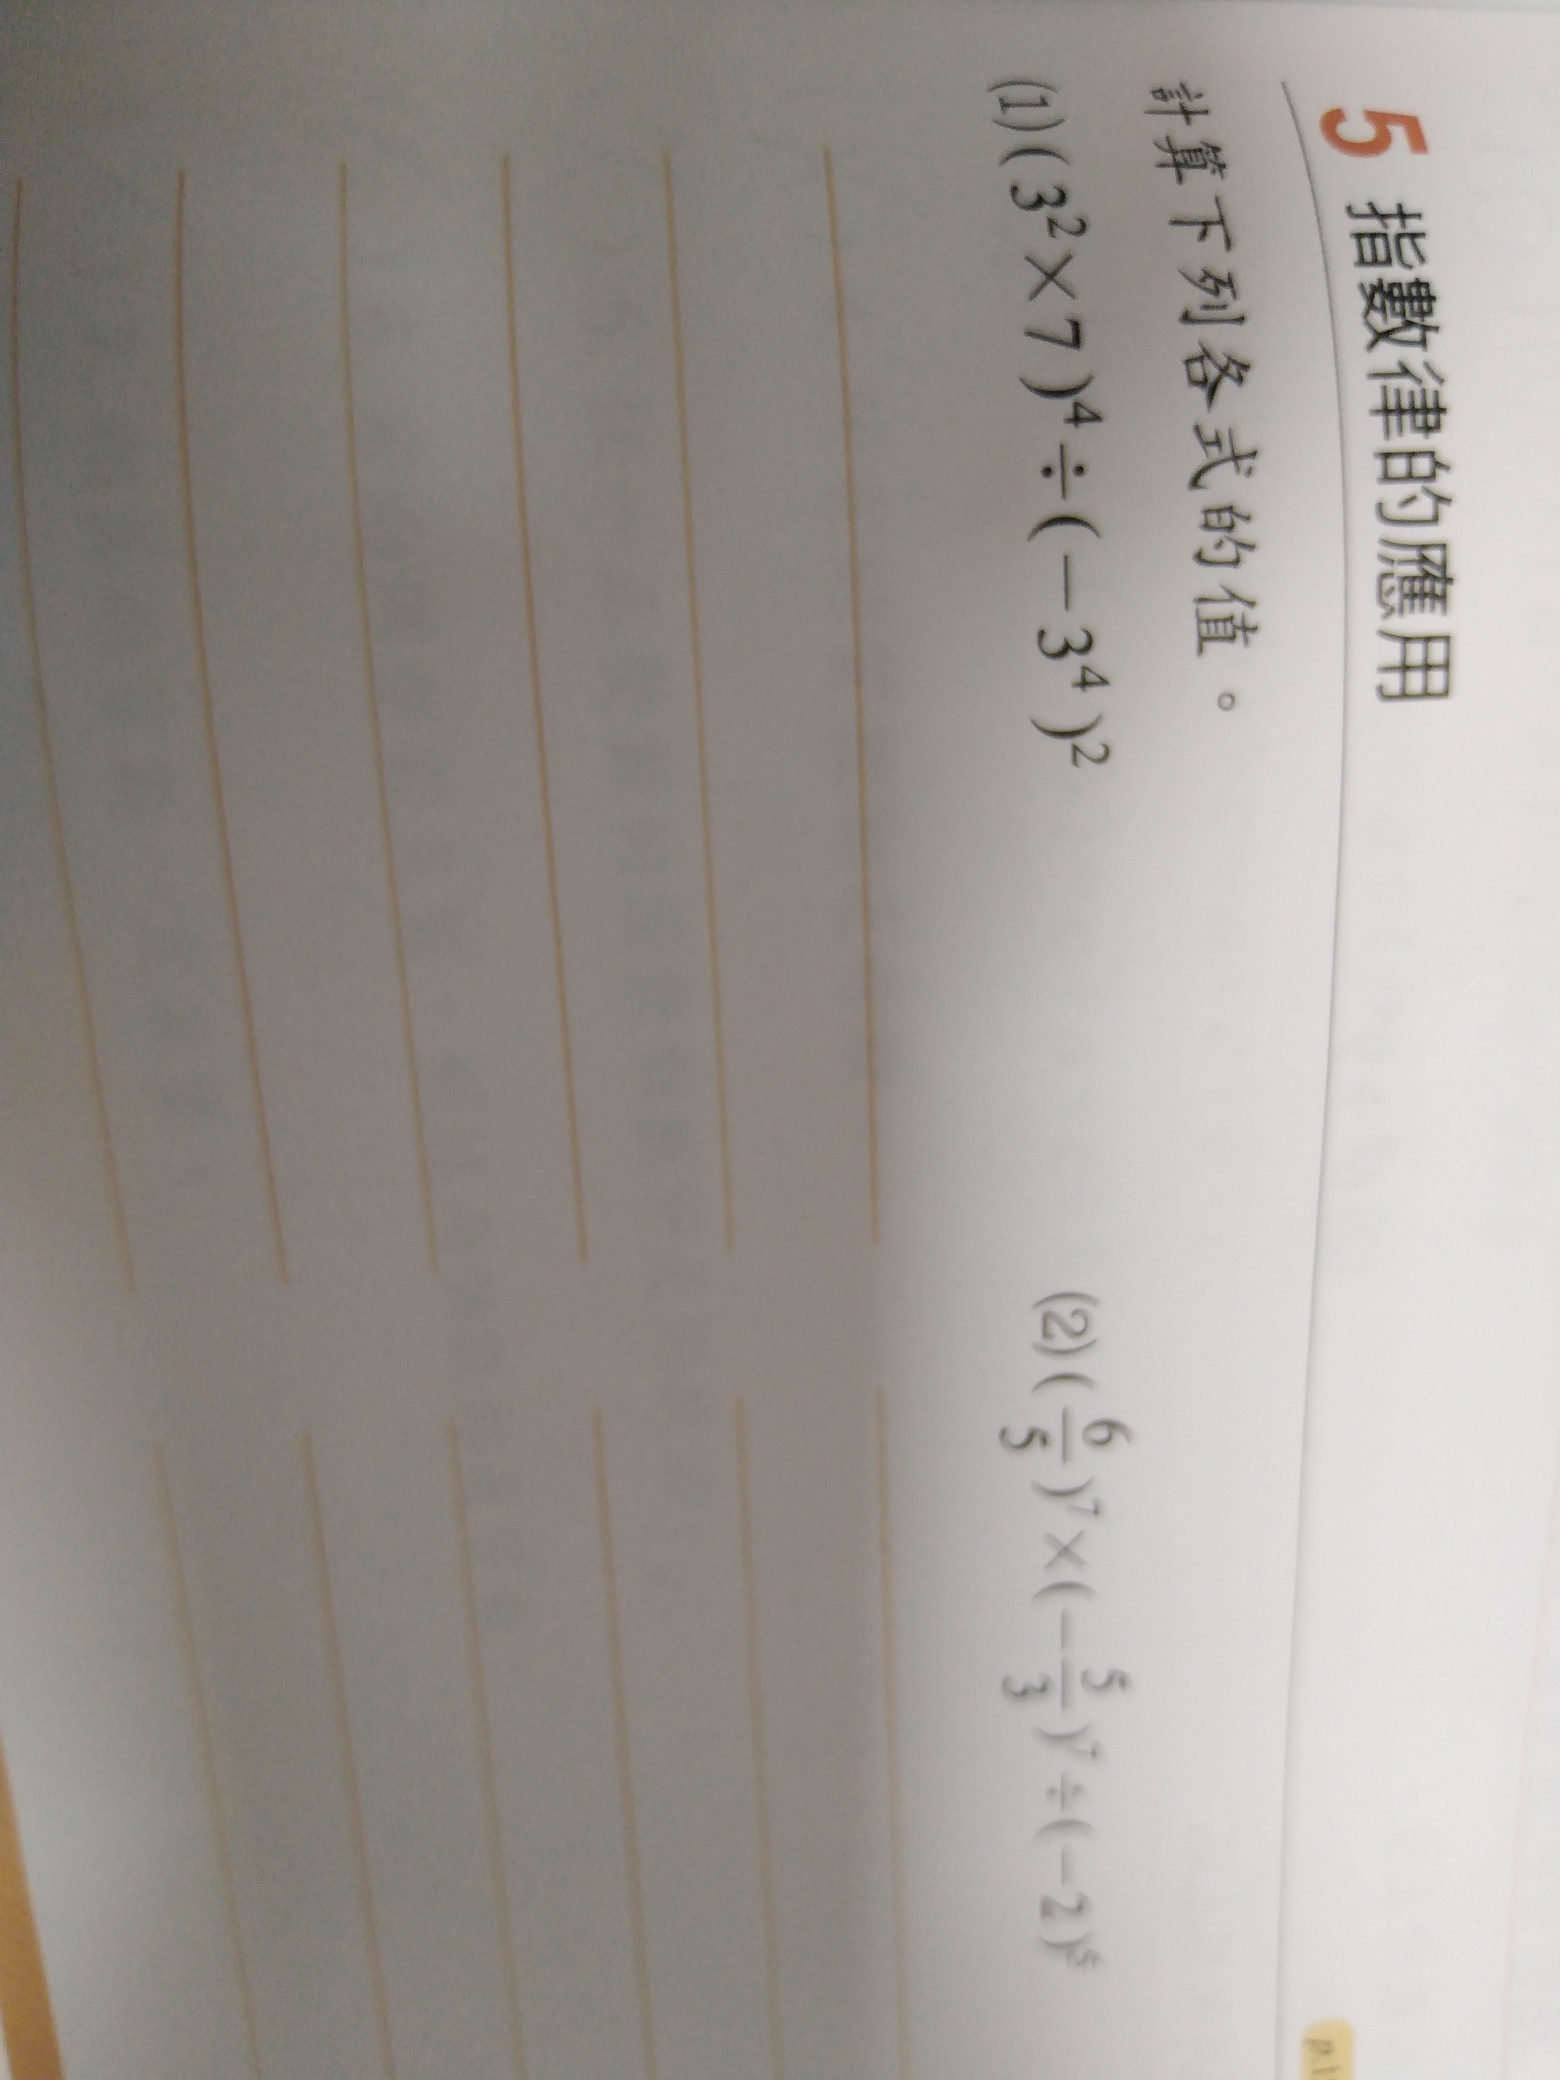 5 指數律的應用
計算下列各式的值。
(1)(3²×7)⁴÷(－3⁴)² (2)(6/5)⁷×(－5/3)⁷÷(－2)⁵